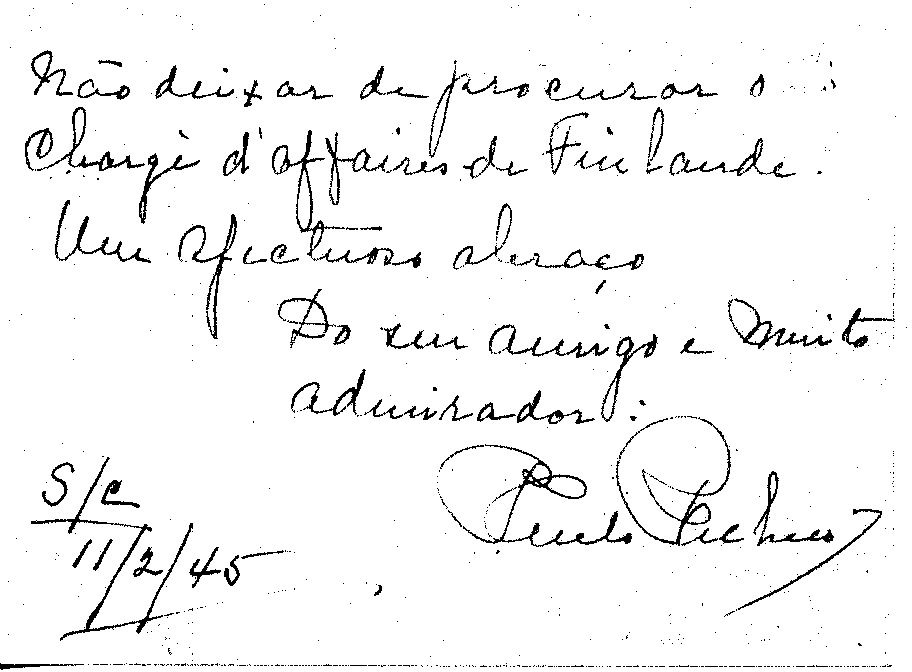 Não deixar de procurar o
Chargè d'affaires de Finlande.
Um afectuoso abraço
Do seu amigo e muito
admirador:
Pacheco
S/C
11/2/45